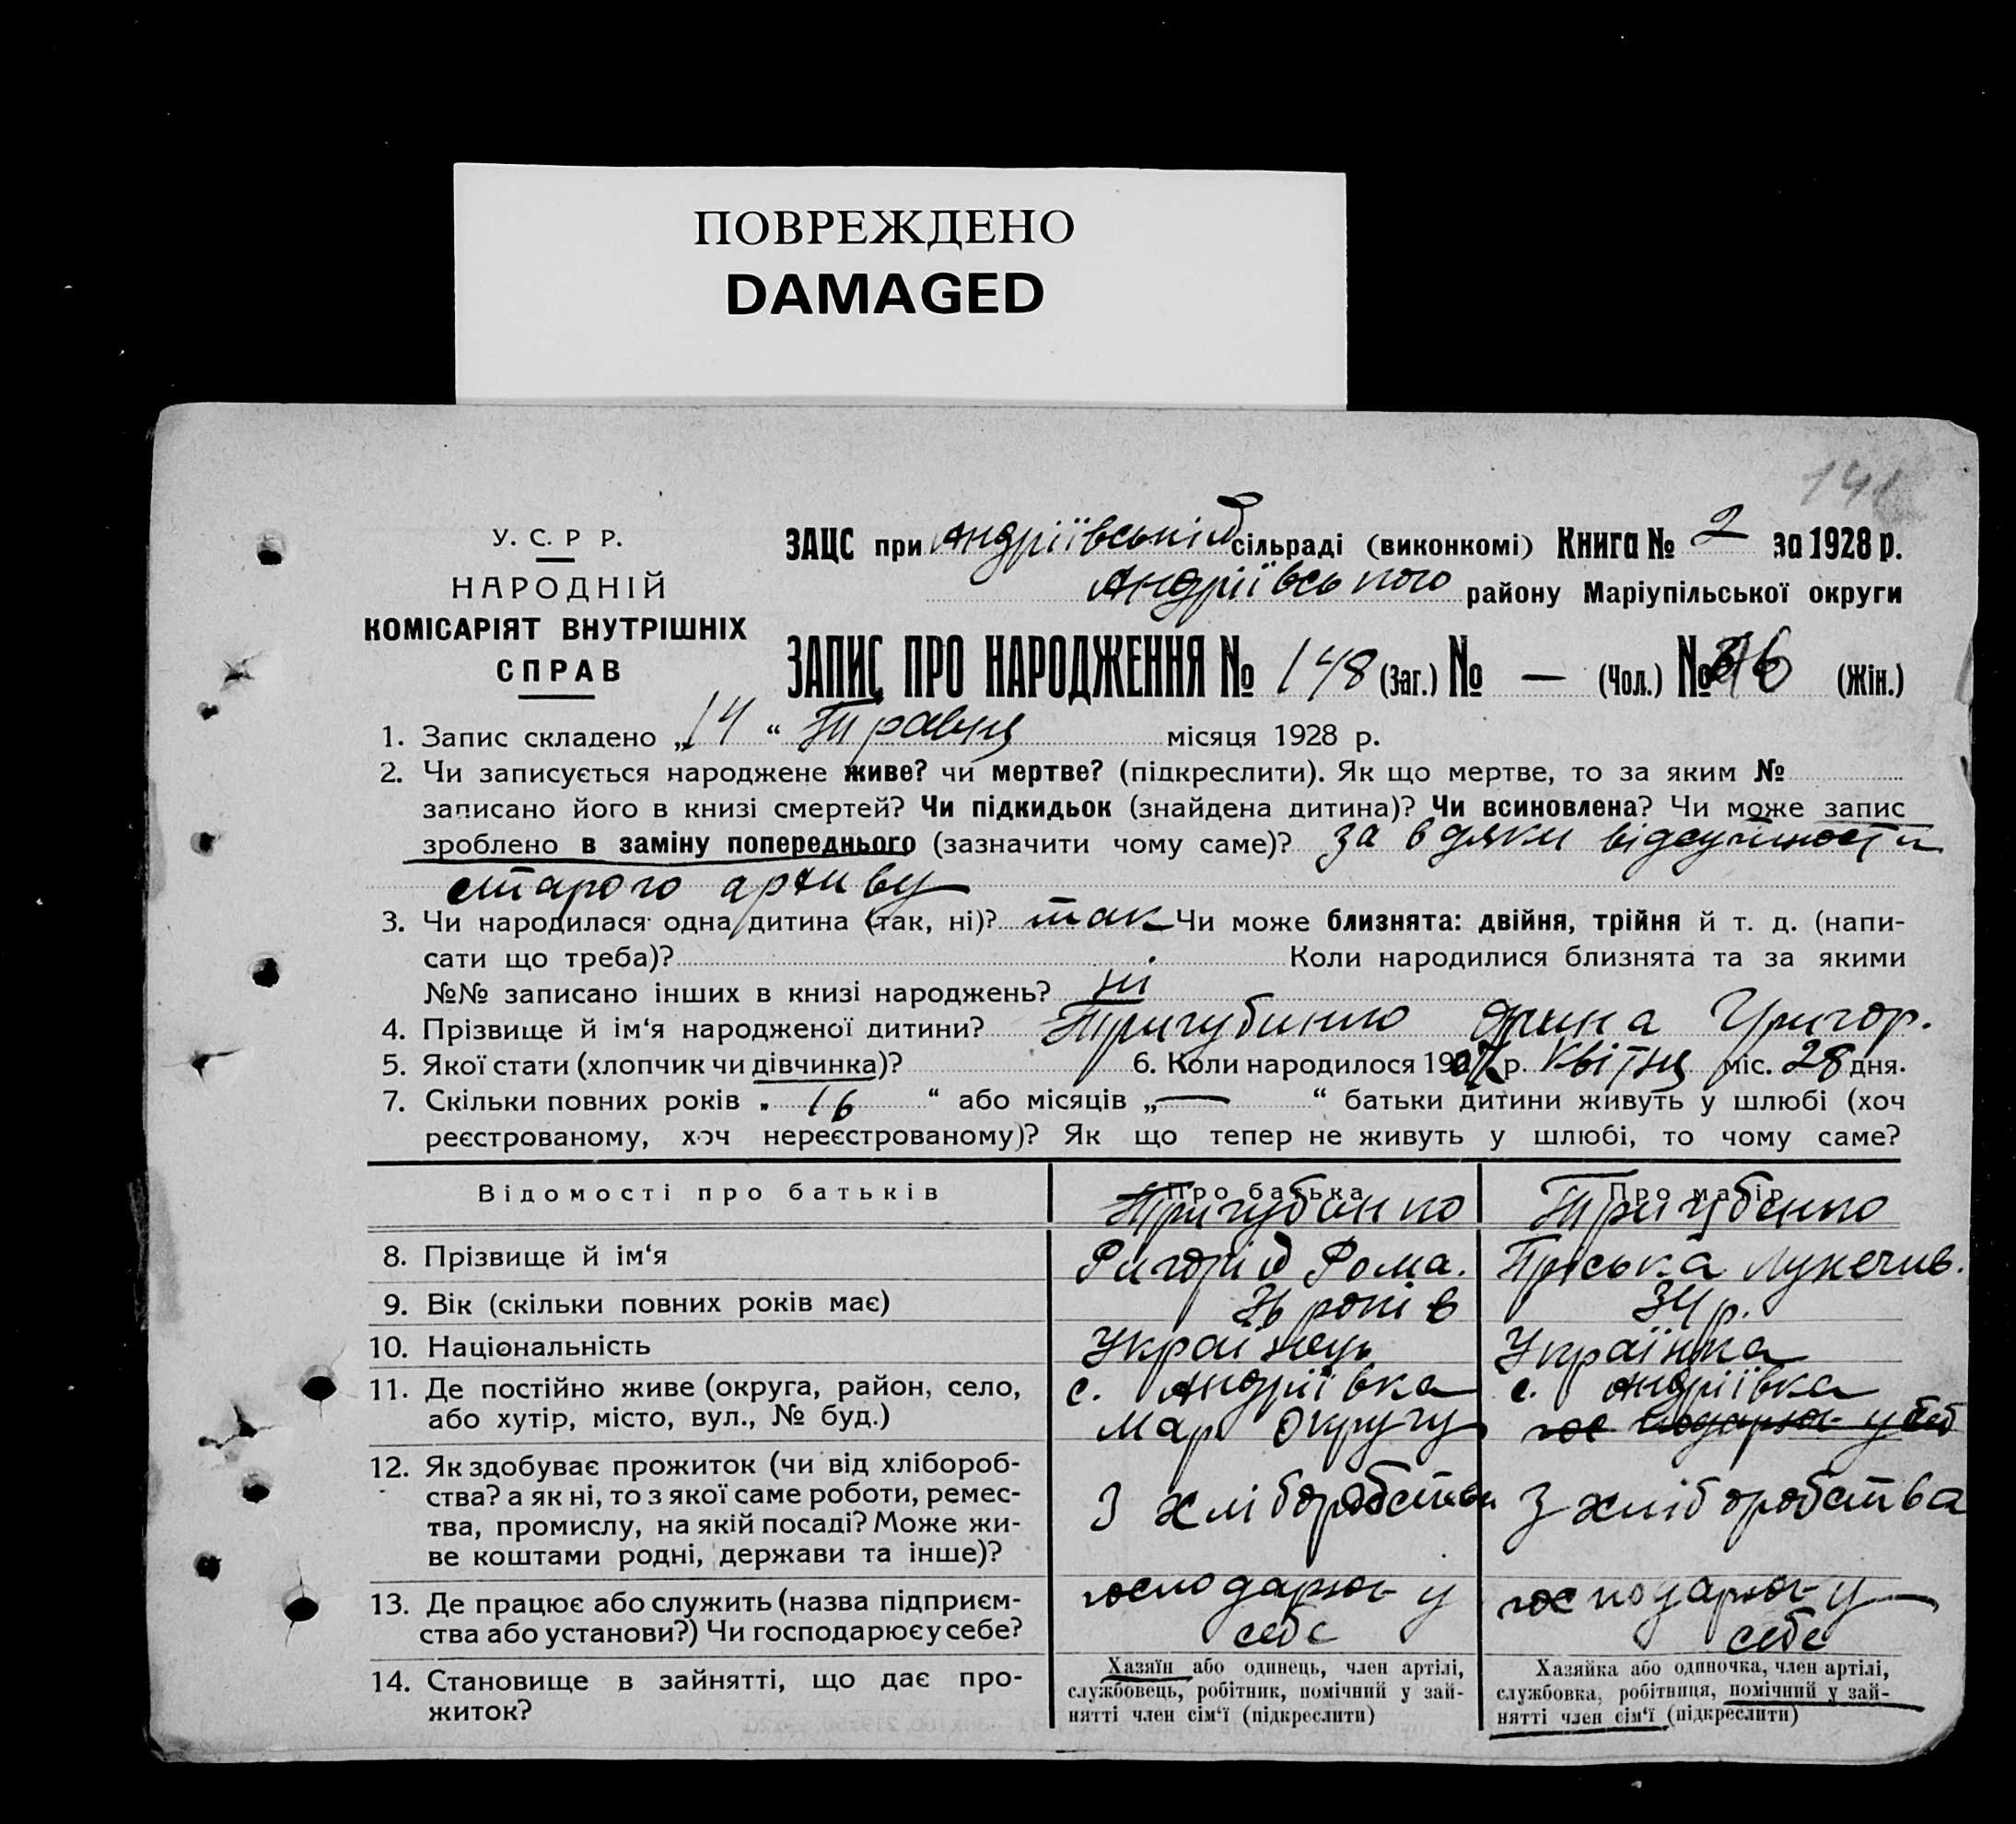 ПОВРЕЖДЕНО
DAMAGED
У. С. Р Р.
НАРОДНІЙ
КОМІСАРІЯТ ВНУТРІШНІХ
СПРАВ
ЗАЦС при Андріївській сільраді (виконкомі) Книга № 2 за 1928 р.
Андріївського району Маріупільської округи
ЗАПИС ПРО НАРОДЖЕННЯ № 148 (Заг.) № — (Чол.) № (Жін.)
1. Запис складено „14“ Травня місяця 1928 р.
2. Чи записується народжене живе? чи мертве? (підкреслити). Як що мертве, то за яким №
записано його в книзі смертей? Чи підкидьок (знайдена дитина)? Чи всиновлена? Чи може запис
зроблено в заміну попереднього (зазначити чому саме)? за вдяки відсутности
старого архиву
3. Чи народилася одна дитина (так, ні)? так Чи може близнята: двійня, трійня й т. д. (напи-
сати що треба)? Коли народилися близнята та за якими
№№ записано інших в книзі народжень? ні
4. Прізвище й ім‘я народженої дитини? Григор.
5. Якої стати (хлопчик чи дівчинка)? 6. Коли народилося 19 р. Квітня міс. 28 дня.
7. Скільки повних років „ 16 “ або місяців „—“ батьки дитини живуть у шлюбі (хоч
реєстрованому, хоч нереєстрованому)? Як що тепер не живуть у шлюбі, то чому саме?
Відомості про батьків Про батька Про матір
Тригубенко Тригубенко
8. Прізвище й ім‘я Ригорій Рома. Пріська
9. Вік (скільки повних років має) років 34 р.
10. Національність Українець Українка
11. Де постійно живе (округа, район, село, с. Андріївка с. Андріївка
або хутір, місто, вул., № буд.) Мар Округу
12. Як здобуває прожиток (чи від хлібороб-
ства? а як ні, то з якої саме роботи, ремес- З хліборобства З хліборобства
тва, промислу, на якій посаді? Може жи-
ве коштами родні, держави та інше)?
13. Де працює або служить (назва підприєм- господарює у господарює у
ства або установи?) Чи господарює у себе? себе себе
14. Становище в зайнятті, що дає про-
житок?
Хазяїн або одинець, член артілі,
службовець, робітник, помічний у зай-
нятті член сім‘ї (підкреслити)
Хазяйка або одиночка, член артілі,
службовка, робітниця, помічний у зай-
нятті член сім‘ї (підкреслити)